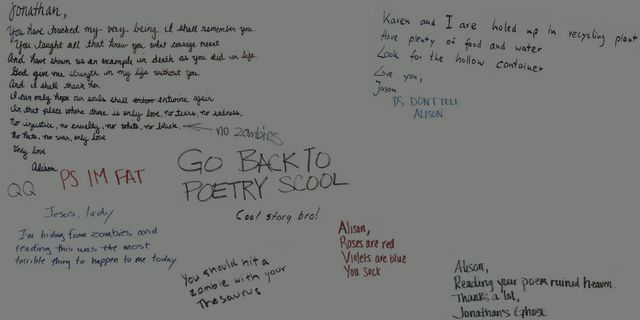 Jonathan,
You have touched my very being. I shall remember you.
You taught all that knew you what courage meant
And have shown us an example in death as you did in life.
God give me strength in my life without you.
And I shall thank him.
I can only hope our souls shall entwine again
In that place where there is only love, no tears, no sadness,
No injustice, no cruelty, no white, no black,
No Hate, no war, only love
My love
Alison
no zombies
PS IM FAT
QQ
Jesus, lady
I'm hiding from zombies and
reading this was the most
terrible thing to happen to me today
GO BACK TO
POETRY SCOOL
Cool story bro!
You should hit a
zombie with your
thesaurus
Karen and I are holed up in recycling plant
Have plenty of food and water
Look for the hollow container
Love you,
Jason
PS DON'T TELL
ALISON
Alison,
Roses are red
Violets are blue
You suck
Alison,
Reading your poem ruined heaven.
Thanks a lot,
Jonathan's Ghost